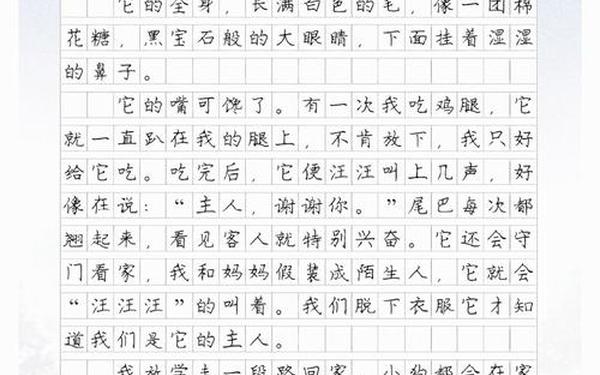 它的全身，长满白色的毛，像一团棉
花糖，黑宝石般的大眼睛，下面挂着湿湿
的鼻子。
它的嘴可馋了。有一次我吃鸡腿，它
就一直趴在我的腿上，不肯放下，我只好
给它吃。吃完后，它便汪汪叫上几声，好
像在说：“主人，谢谢你。”尾巴每次都
翘起来，看见客人就特别兴奋。它还会守
门看家，我和妈妈假装成陌生人，它就会
“汪汪汪”的叫着。我们脱下衣服它才知
道我们是它的主人。
我放学走一段路回家，小狗都会在家